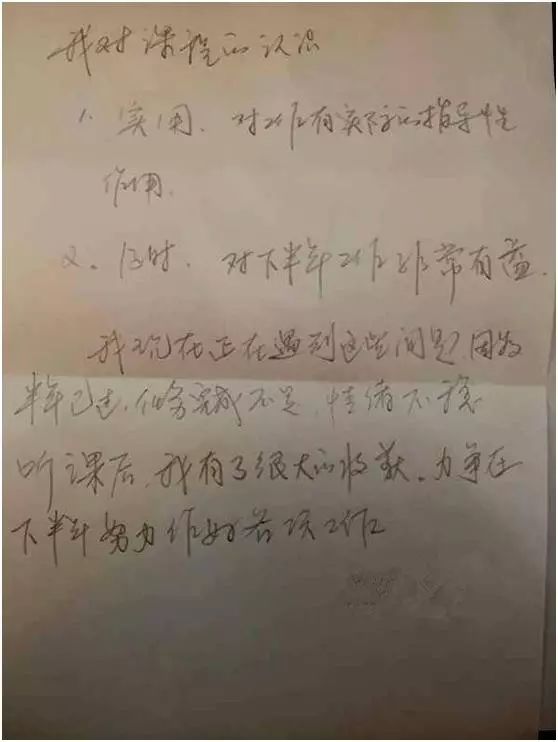 我对课程的认识
1. 实用、对工作有实际的指导性
作用.
2. 及时. 对下半年工作非常有益.
我现在正在遇到这些问题,因为
半年已过,任务完成不足,情绪不稳
听课后,我有了很大的收获。力争在
下半年努力作好各项工作